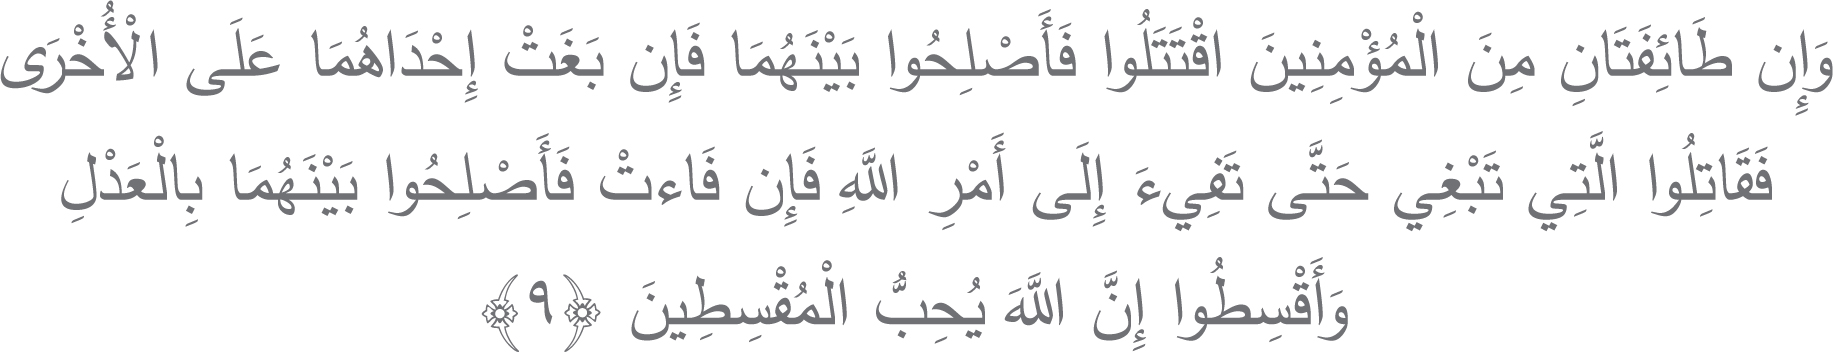 وَإِن طَائِفَتَانِ مِنَ الْمُؤْمِنِينَ اقْتَتَلُوا فَأَصْلِحُوا بَيْنَهُمَا فَإِن بَغَتْ إِحْدَاهُمَا عَلَى الْأُخْرَى
فَقَاتِلُوا الَّتِي تَبْغِي حَتَّى تَفِيءَ إِلَى أَمْرِ اللَّهِ فَإِن فَاءتْ فَأَصْلِحُوا بَيْنَهُمَا بِالْعَدْلِ
وَأَقْسِطُوا إِنَّ اللَّهَ يُحِبُّ الْمُقْسِطِينَ ﴿٩﴾